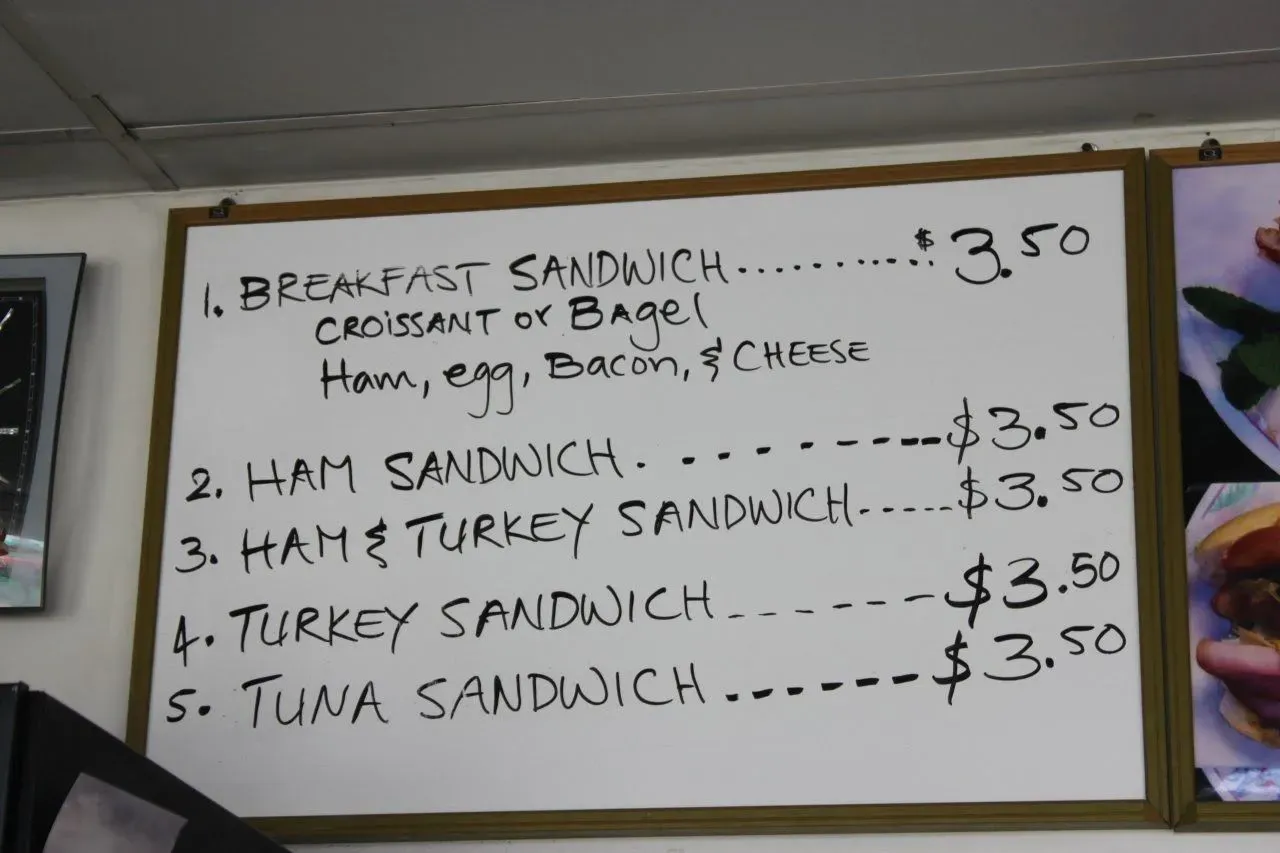 1. BREAKFAST SANDWICH ............ $3.50
CROISSANT or BAgel
Ham, egg, Bacon, & CHEESE
2. HAM SANDWICH. - - - - - - - - - $3.50
3. HAM & TURKEY SANDWICH ----- $3.50
4. TURKEY SANDWICH - - - - - - - $3.50
5. TUNA SANDWICH - - - - - - - $3.50